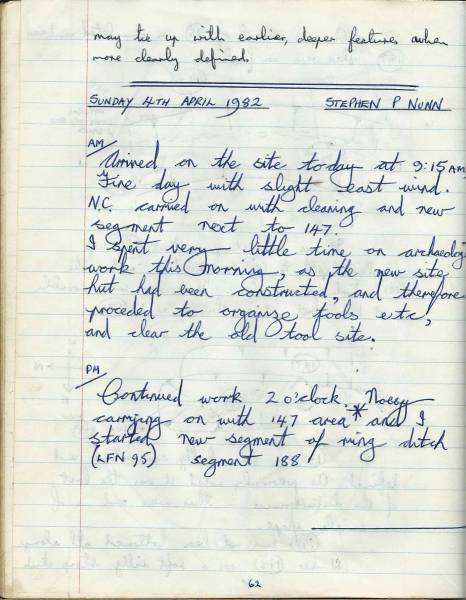 may tie up with earlier, deeper features when
more clearly defined.
SUNDAY 4TH APRIL 1982 STEPHEN P NUNN
AM/
Arrived on the site today at 9:15AM
Fine day with slight east wind.
N.C. carried on with cleaning and new
segment next to 147.
I spent very little time on archaeology
work this morning, as the new site
hut had been constructed, and therefore
proceded to organise tools etc,
and clear the old tool site.
PM/
Continued work 2 o'clock. 
carrying on with 147 area* and I
started new segment of ring ditch
(LFN 95) segment 188
62